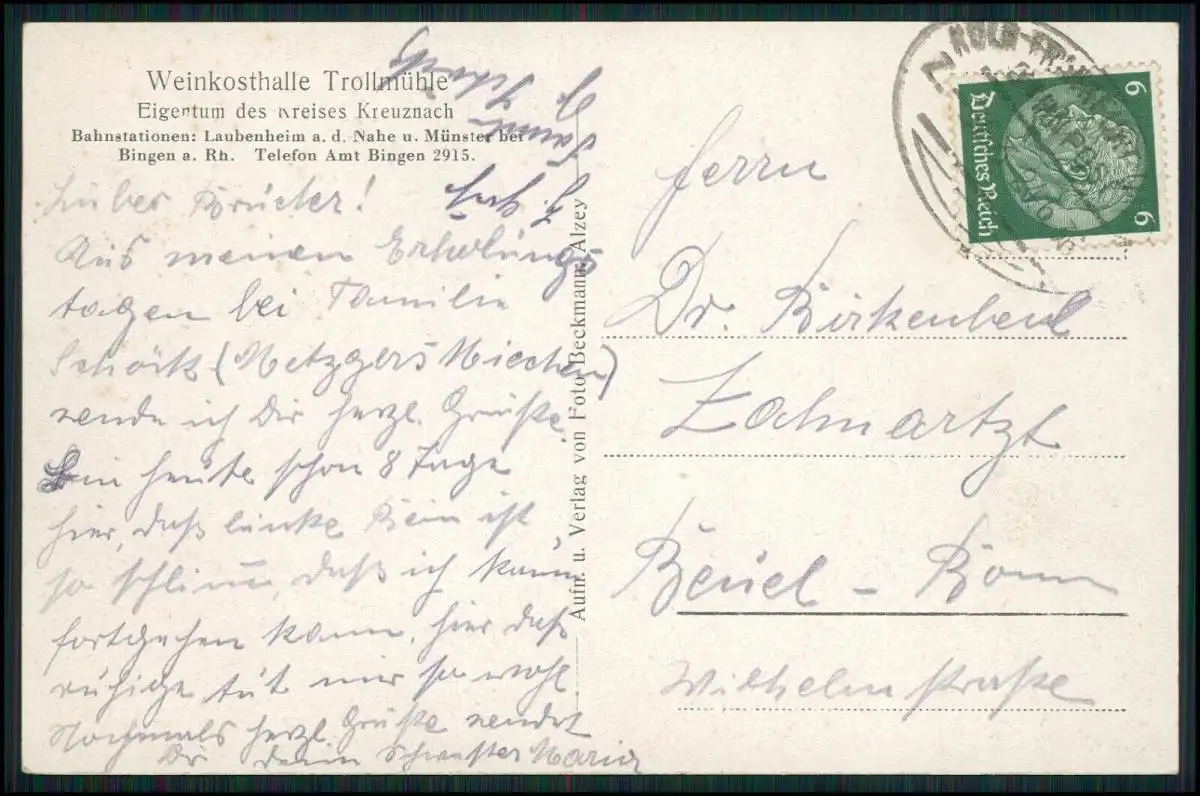 Weinkosthalle Trollmühle
Eigentum des Kreises Kreuznach
Bahnstationen: Laubenheim a. d. Nahe u. Münster bei
Bingen a. Rh. Telefon Amt Bingen 2915.
Lieber Brüder!
Aus meinen Erholungs
tagen bei Familie
Schörk (Metzgers Niechen)
sende ich Dir herzl. Grüße
Bin heute schon 8 Tage
hier, daß linke Bein ist
so schlimm, daß ich kaum
fortgehen kann, hier daß
ruhige tut mir so wohl
Nochmals herzl. Grüße sendet
Dir Deine Schwester Maria
Aufn. u. Verlag von Foto Beckmann, Alzey
Deutsches Reich
6
6
Herrn
Dr. Birkenbeul
Zahnartzt
Beuel - Bonn
Wilhelmstraße